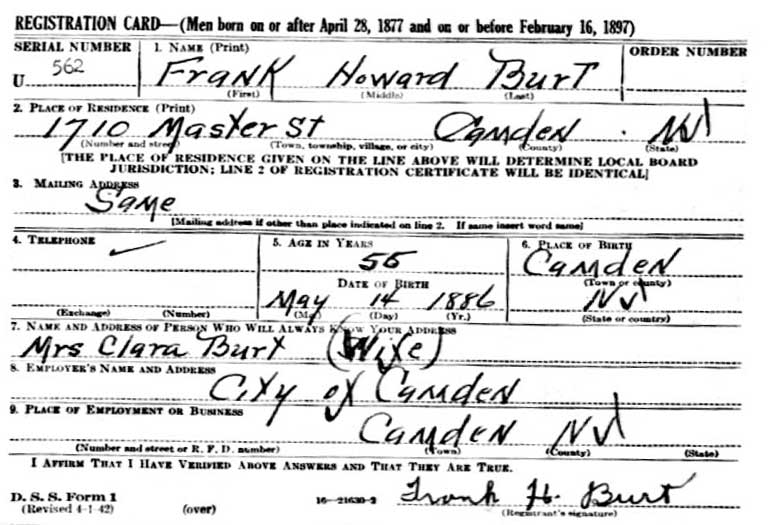 REGISTRATION CARD—(Men born on or after April 28, 1877 and on or before February 16, 1897)
SERIAL NUMBER 1. NAME (Print) ORDER NUMBER
U 562 Frank Howard Burt
(First) (Middle) (Last)
2. PLACE OF RESIDENCE (Print)
1710 Master St Camden NJ
(Number and street) (Town, township, village, or city) (County) (State)
[THE PLACE OF RESIDENCE GIVEN ON THE LINE ABOVE WILL DETERMINE LOCAL BOARD
JURISDICTION; LINE 2 OF REGISTRATION CERTIFICATE WILL BE IDENTICAL]
3. MAILING ADDRESS
Same
[Mailing address if other than place indicated on line 2. If same insert word same]
4. TELEPHONE 5. AGE IN YEARS 6. PLACE OF BIRTH
55 Camden
(Town or county)
DATE OF BIRTH
May 14 1886 NJ
(Exchange) (Number) (Mo.) (Day) (Yr.) (State or country)
7. NAME AND ADDRESS OF PERSON WHO WILL ALWAYS KNOW YOUR ADDRESS
Mrs Clara Burt (Wife)
8. EMPLOYER'S NAME AND ADDRESS
City of Camden
9. PLACE OF EMPLOYMENT OR BUSINESS
Camden NJ
(Number and street or R. F. D. number) (Town) (County) (State)
I AFFIRM THAT I HAVE VERIFIED ABOVE ANSWERS AND THAT THEY ARE TRUE.
D. S. S. Form 1
(Revised 4-1-42) (over) 16—21630-2 Frank H. Burt
(Registrant's signature)